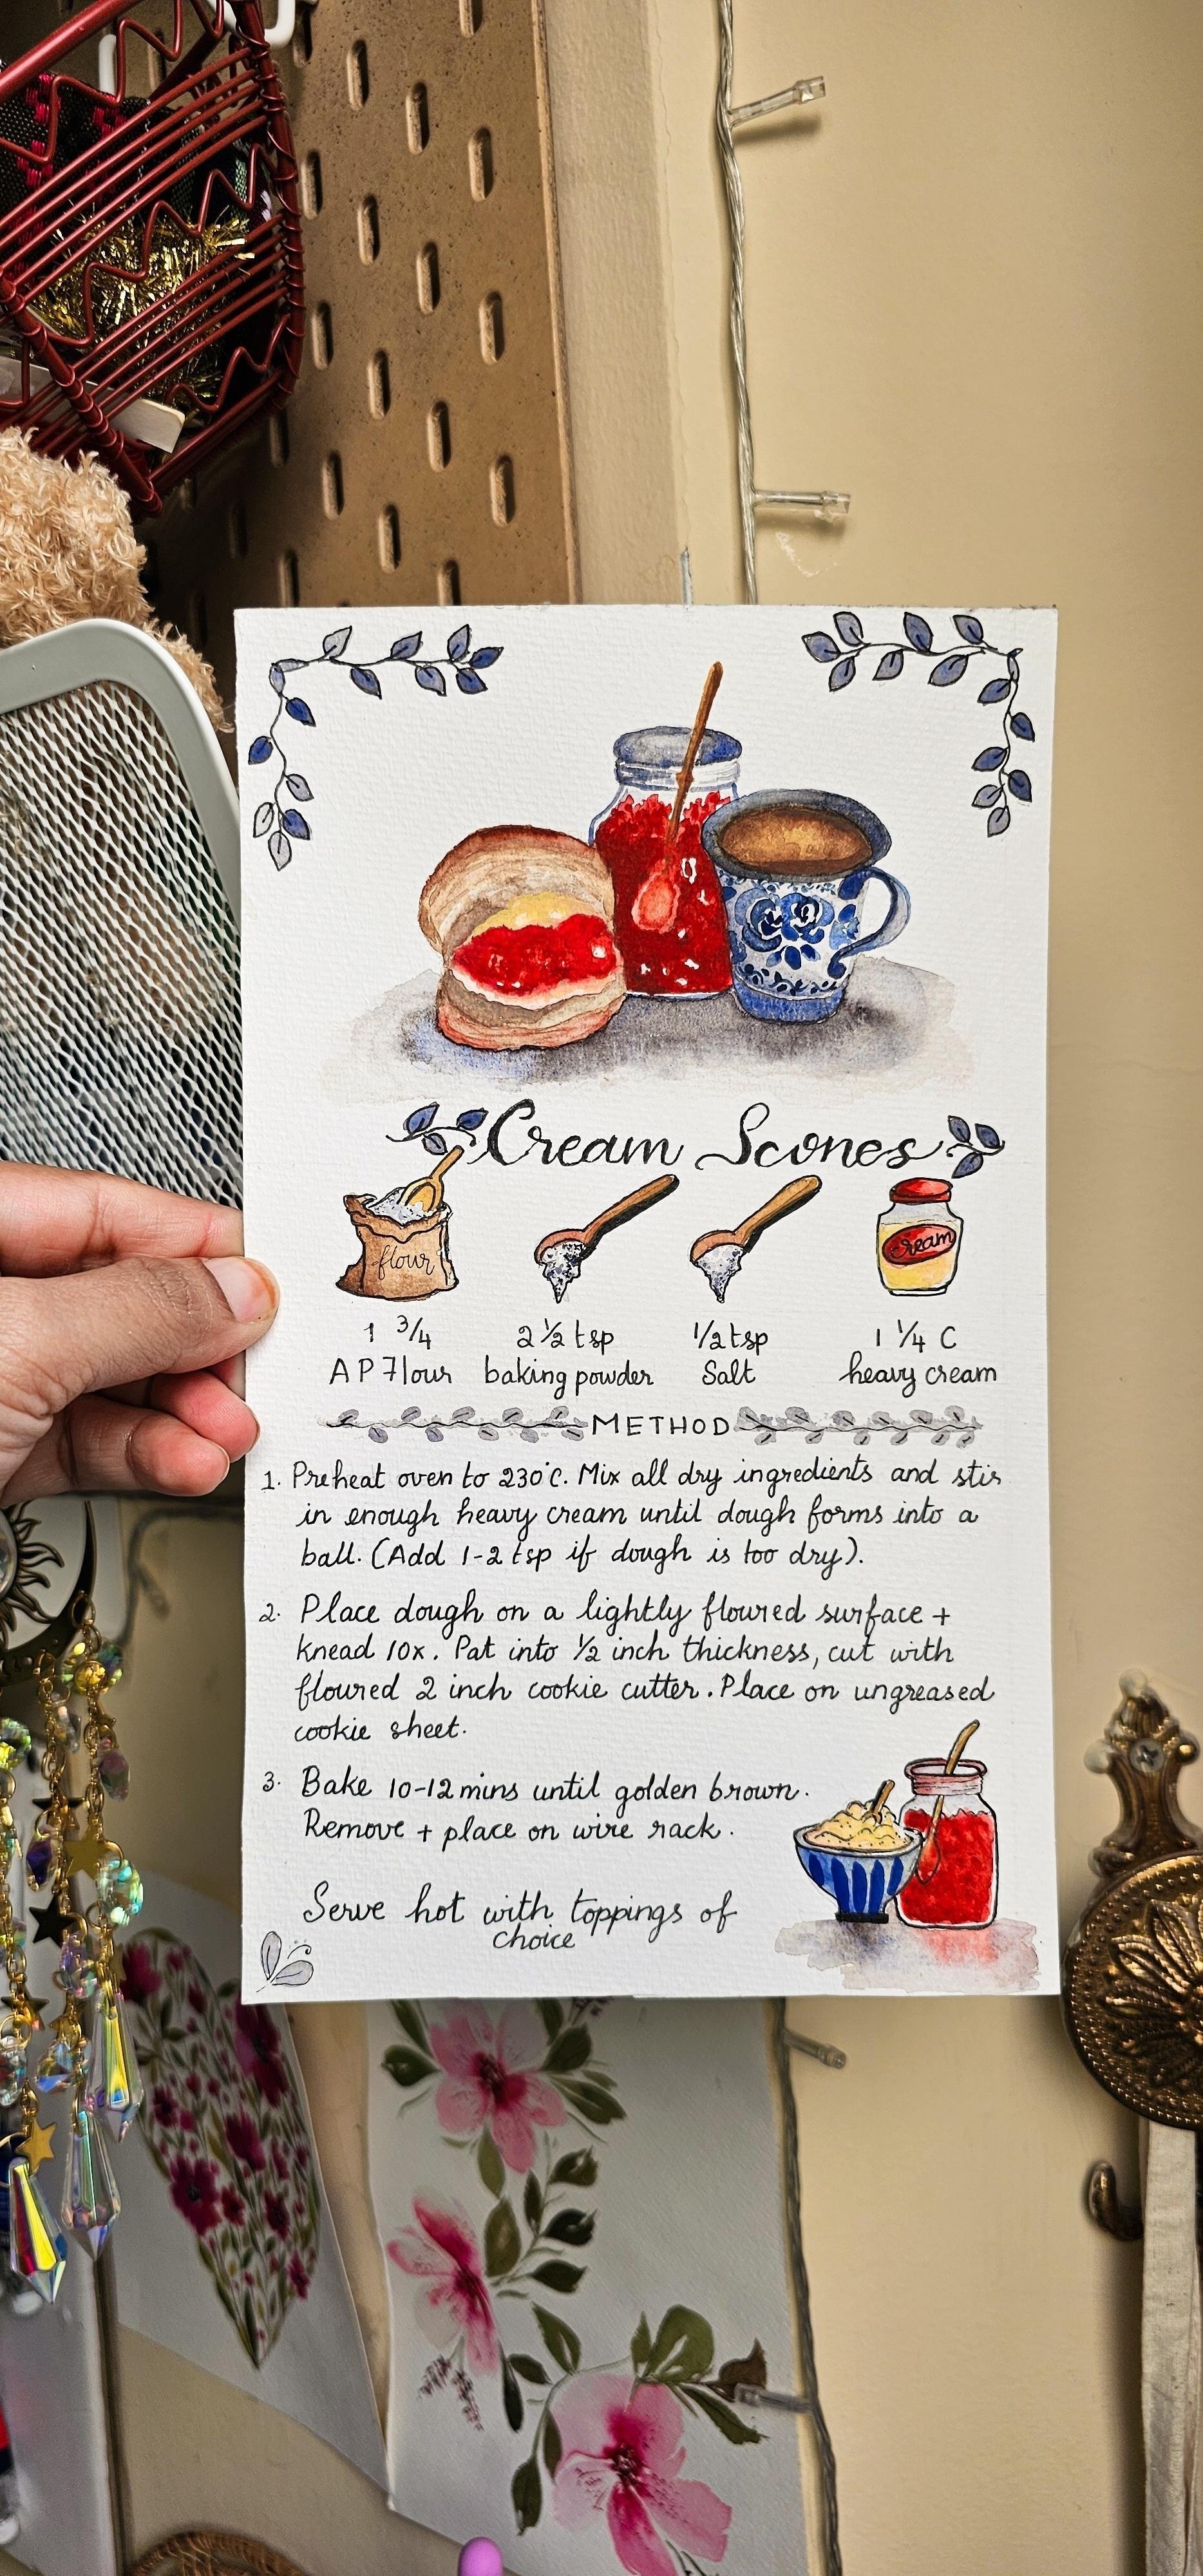 Cream Scones
flour
cream
1 3/4
2 1/2 tsp
1/2 tsp
1 1/4 C
A P Flour
baking powder
Salt
heavy cream
METHOD
1. Preheat oven to 230°C. Mix all dry ingredients and stir
in enough heavy cream until dough forms into a
ball. (Add 1-2 tsp if dough is too dry).
2. Place dough on a lightly floured surface +
knead 10x. Pat into 1/2 inch thickness, cut with
floured 2 inch cookie cutter. Place on ungreased
cookie sheet.
3. Bake 10-12 mins until golden brown.
Remove + place on wire rack.
Serve hot with toppings of
choice